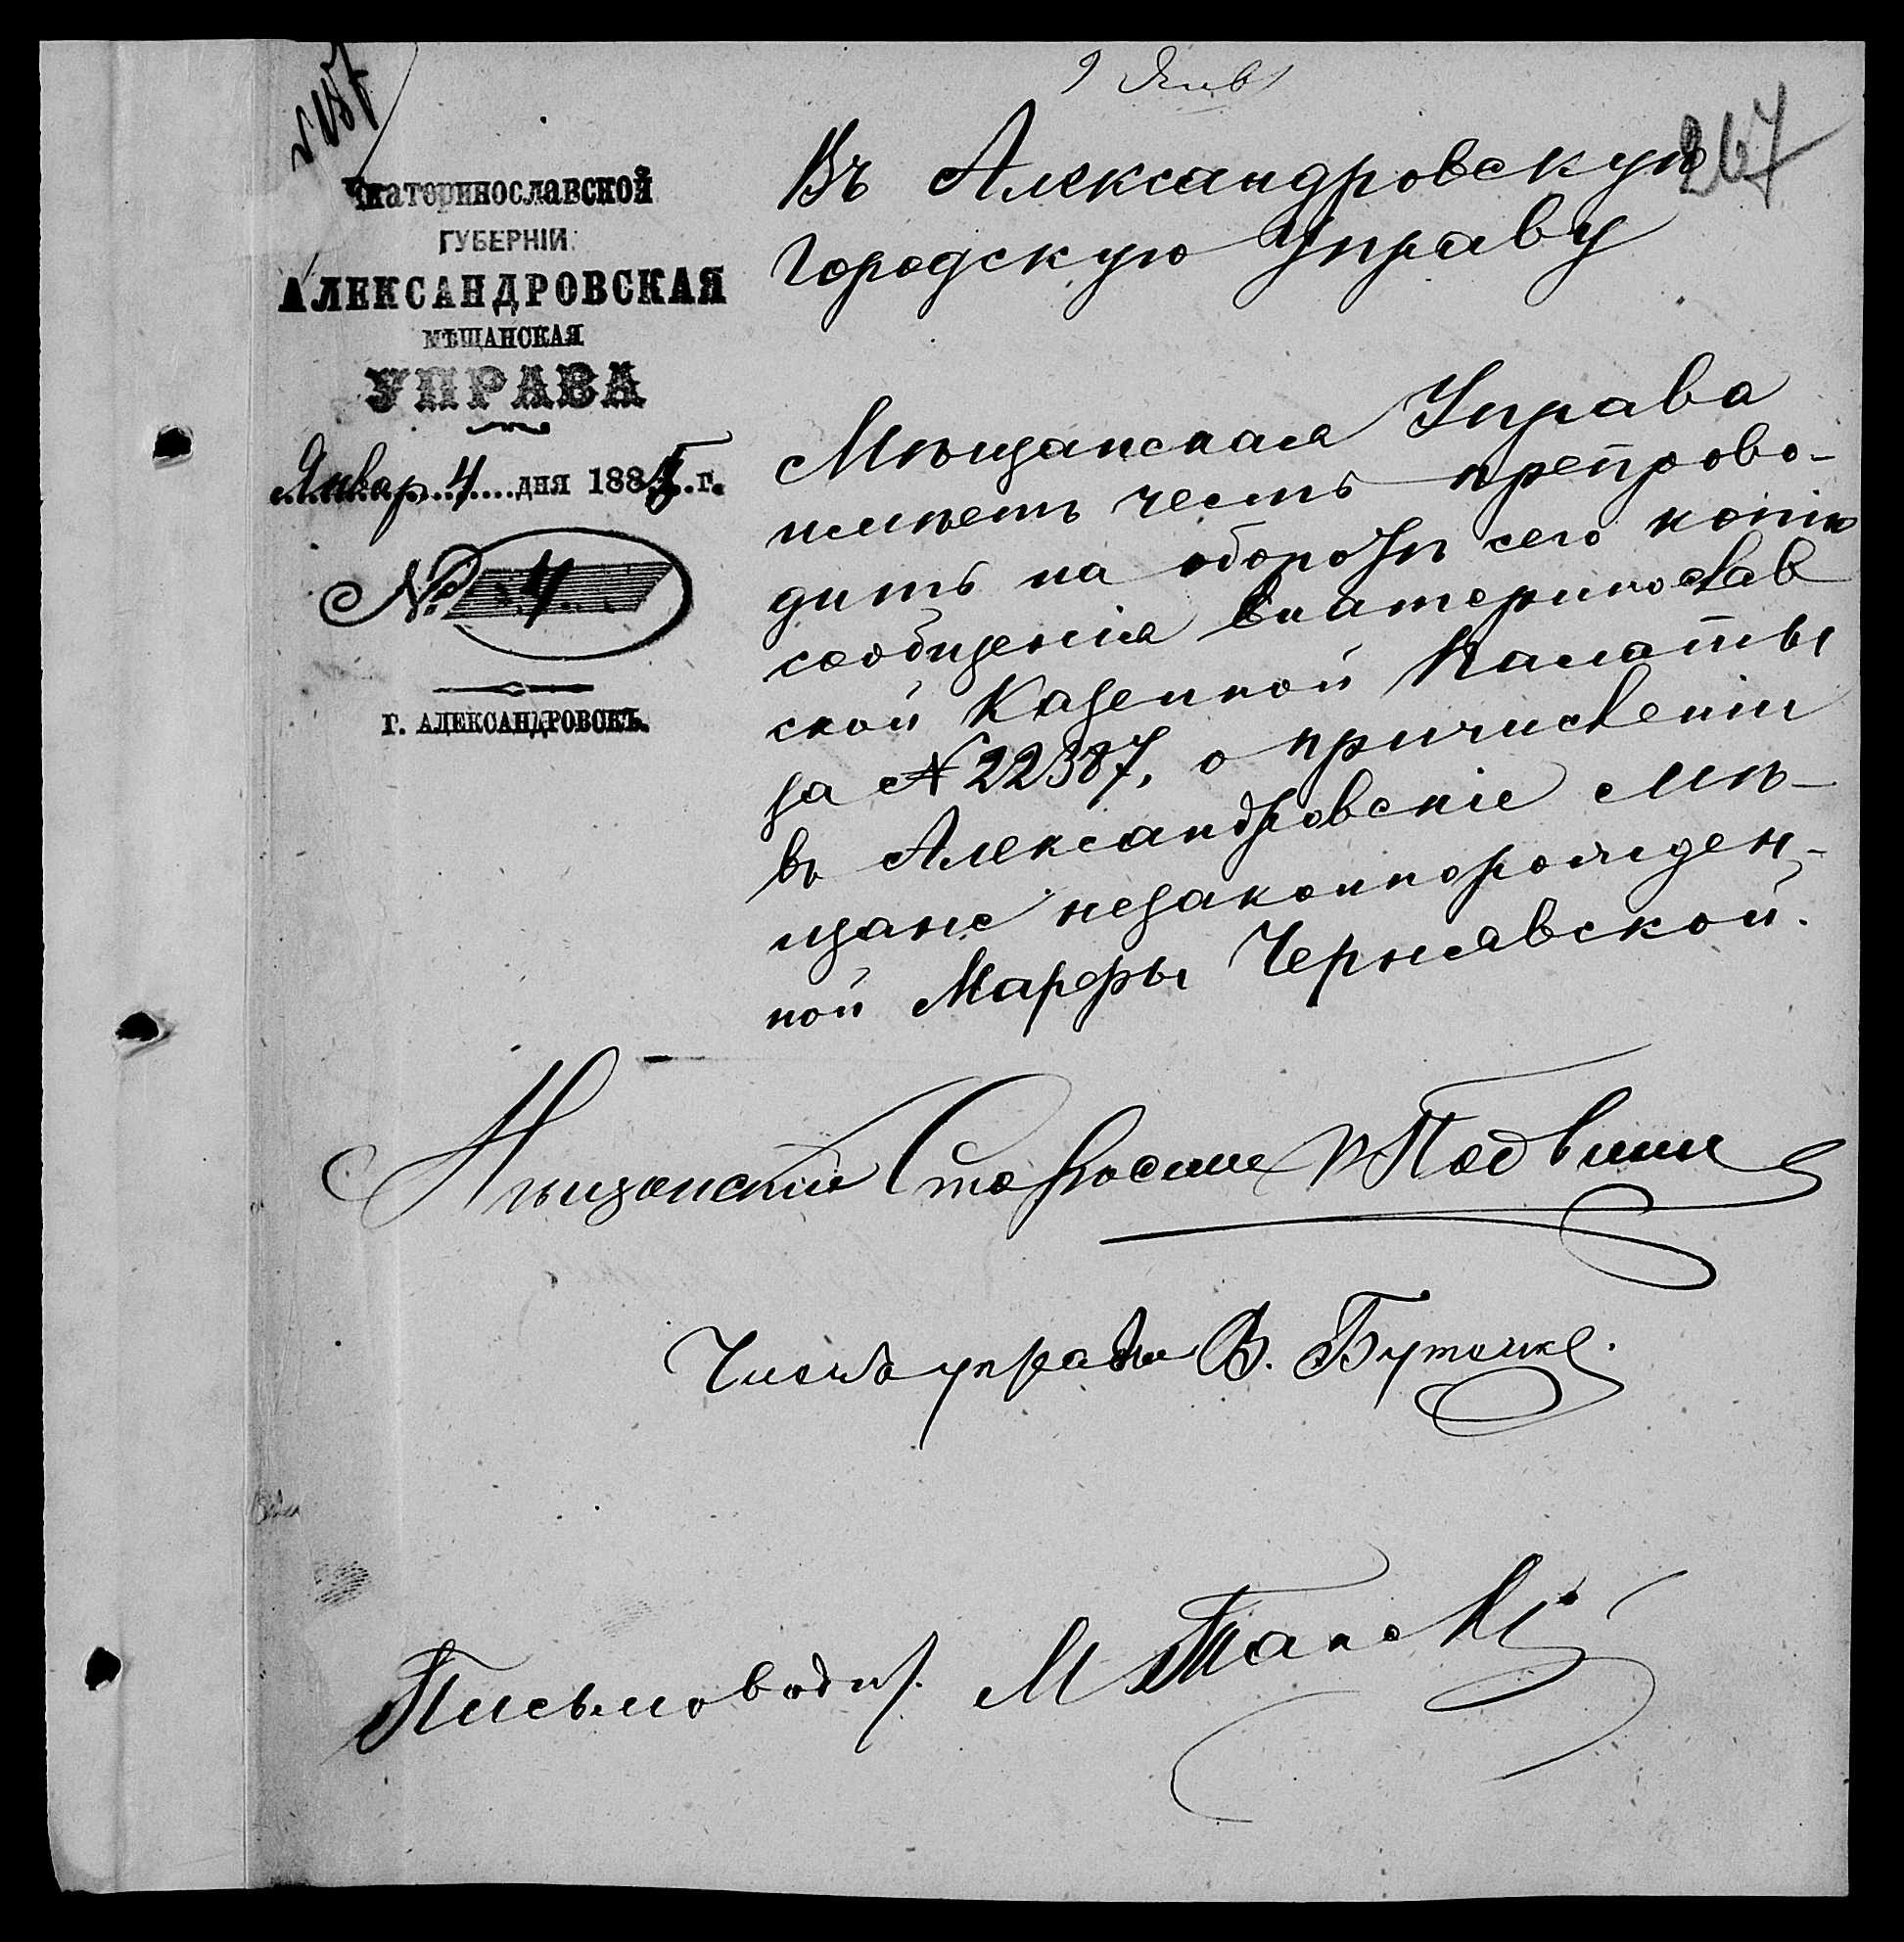 9 Янв
№ 187
267
Екатеринославской
ГУБЕРНІИ
АЛЕКСАНДРОВСКАЯ
МѢЩАНСКАЯ
УПРАВА
Январ 4 дня 1885 г.
№ 4
Г. АЛЕКСАНДРОВСКЪ.
Въ Александровскую
Городскую Управу
Мѣщанская Управа
имѣетъ честь препрово-
дить на оборотѣ сего копію
сообщенія Екатеринослав
ской Казенной Палаты
за № 22387, о причисленіи
въ Александровскіе мѣ-
щане незаконнорожден-
ной Марфы Чернявской.
Мѣщанскій Староста
Членъ управы В.
Письмоводит. М